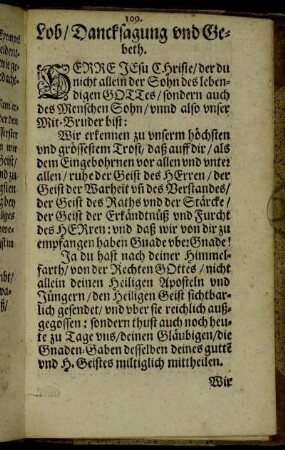 109.
Lob/ Dancksagung vnd Ge-
beth.
HERRE JEsu CHriste/ der du
nicht allein der Sohn des leben-
digen GOTTes/ sondern auch
des Menschen Sohn/ vnnd also vnser
Mit-Bruder bist:
Wir erkennen zu vnserm höchsten
vnd grössestem Trost/ daß auff dir/ als
dem Eingebohrnen vor allen vnd vnter
allen/ ruhe der Geist des HErren/ der
Geist der Warheit vñ des Verstandes/
der Geist des Raths vnd der Stärcke/
der Geist der Erkändtnüß vnd Furcht
des HERren: vnd daß wir von dir zu
empfangen haben Gnade vber Gnade!
Ja du hast nach deiner Himmel-
farth/ von der Rechten GOttes/ nicht
allein deinen Heiligen Aposteln vnd
Jüngern/ den Heiligen Geist sichtbar-
lich gesendet/ vnd vber sie reichlich auß-
gegossen: sondern thust auch noch heu-
te zu Tage vns/ deinen Gläubigen/ die
Gnaden-Gaben desselben deines guttẽ
vnd H. Geistes miltiglich mittheilen.
Wir